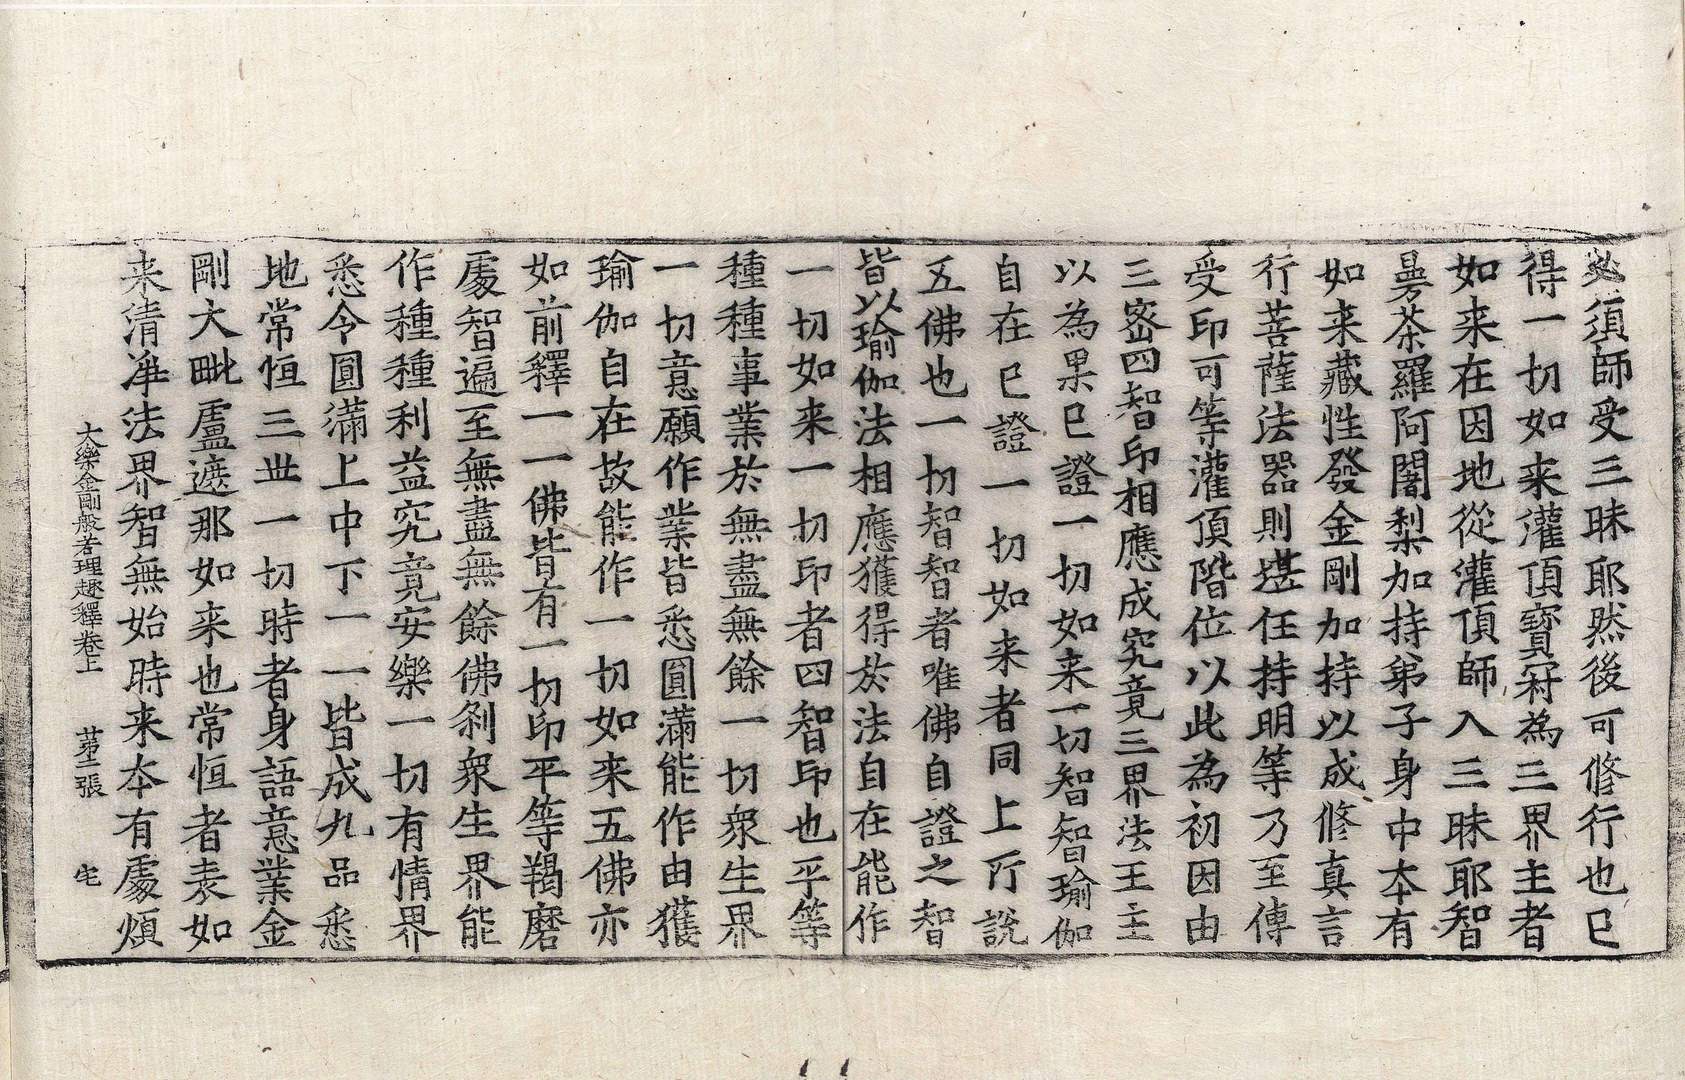 必須師受三昧耶然後可修行也已
得一切如来灌頂寶冠為三界主者
如来在因地從灌頂師入三昧耶智
曼荼羅阿闍梨加持弟子身中夲有
如来藏性發金剛加持以成修真言
行菩薩法器則堪任持明等乃至傳
受印可等灌頂階位以此為初因由
三密四智印相應成究竟三界法王主
以為果已證一切如来一切智智瑜伽
自在已證一切如来者同上所説
五佛也一切智智者唯佛自證之智
皆以瑜伽法相應獲得於法自在能作
一切如来一切印者四智印也平等
種種事業於無盡無餘一切衆生界
一切意願作業皆悉圓滿能作由獲
瑜伽自在故能作一切如来五佛亦
如前釋一一佛皆有一切印平等羯磨
處智遍至無盡無餘佛刹衆生界能
作種種利益究竟安樂一切有情界
悉令圓滿上中下一一皆成九品悉
地常恒三世一切時者身語意業金
剛大毗盧遮那如来也常恒者表如
来清淨法界智無始時来夲有處煩
大樂金剛般若理趣釋卷上 第二張 宅